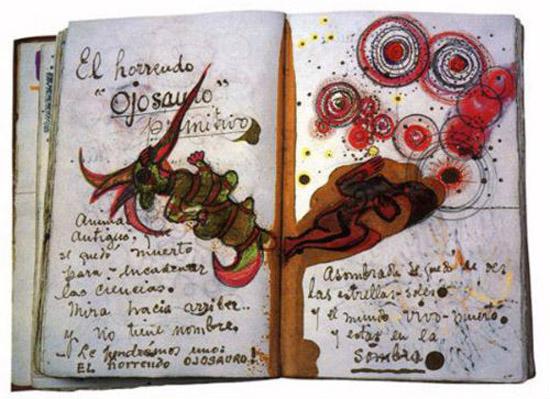 El horrendo
"Ojosauro"
primitivo
Animal
antiguo,
se quedo muerto
para encadenar
las ciencias.
Mira hacia arriba..
y no tiene nombre.
- Le pondremos uno:
EL horrendo OJOSAURO!
Asombrada se quedó de ver
las estrellas-soles
y el mundo vivo-muerto
y estar en la
sombra